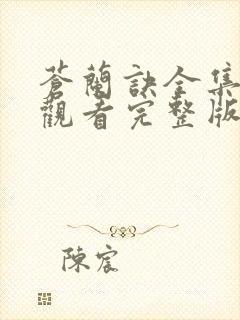 蒼蘭訣全集
觀看完整版
陳宸